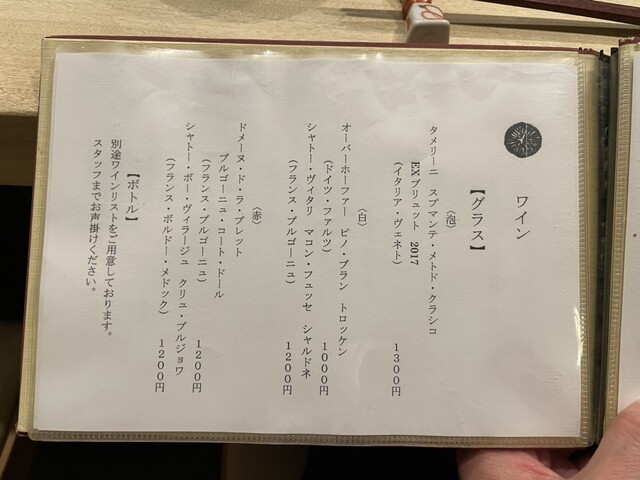 ワイン
【グラス】
〈泡〉
タメリーニ　スプマンテ・メトド・クラシコ
EXブリュット　2017
（イタリア・ヴェネト）　1300円
〈白〉
オーバーホーファー　ピノ・ブラン　トロッケン
（ドイツ・ファルツ）　1000円
シャトー・ヴィタリ　マコン・フュッセ　シャルドネ
（フランス・ブルゴーニュ）　1200円
〈赤〉
ドメーヌ・ド・ラ・プレット
ブルゴーニュ・コート・ドール
（フランス・ブルゴーニュ）　1200円
シャトー・ボー・ヴィラージュ　クリュ・ブルジョワ
（フランス・ボルドー・メドック）　1200円
【ボトル】
別途ワインリストをご用意しております。
スタッフまでお声掛けください。